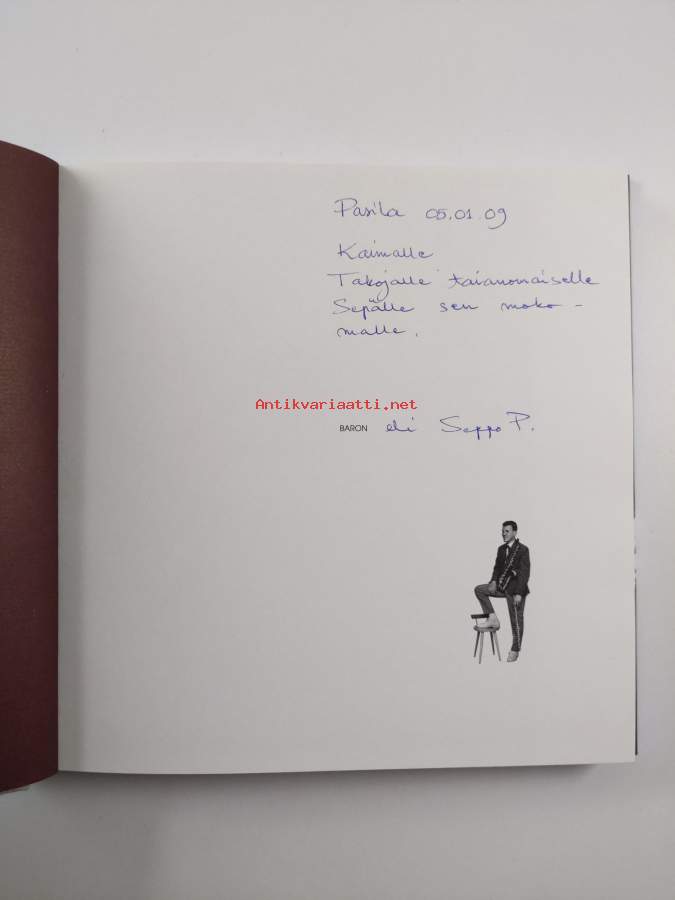 Pasila 05.01.09
Kaimalle
Takojalle taianomaiselle
Sepälle sen moko-
malle.
Antikvariaatti.net
BARON eli Seppo P.